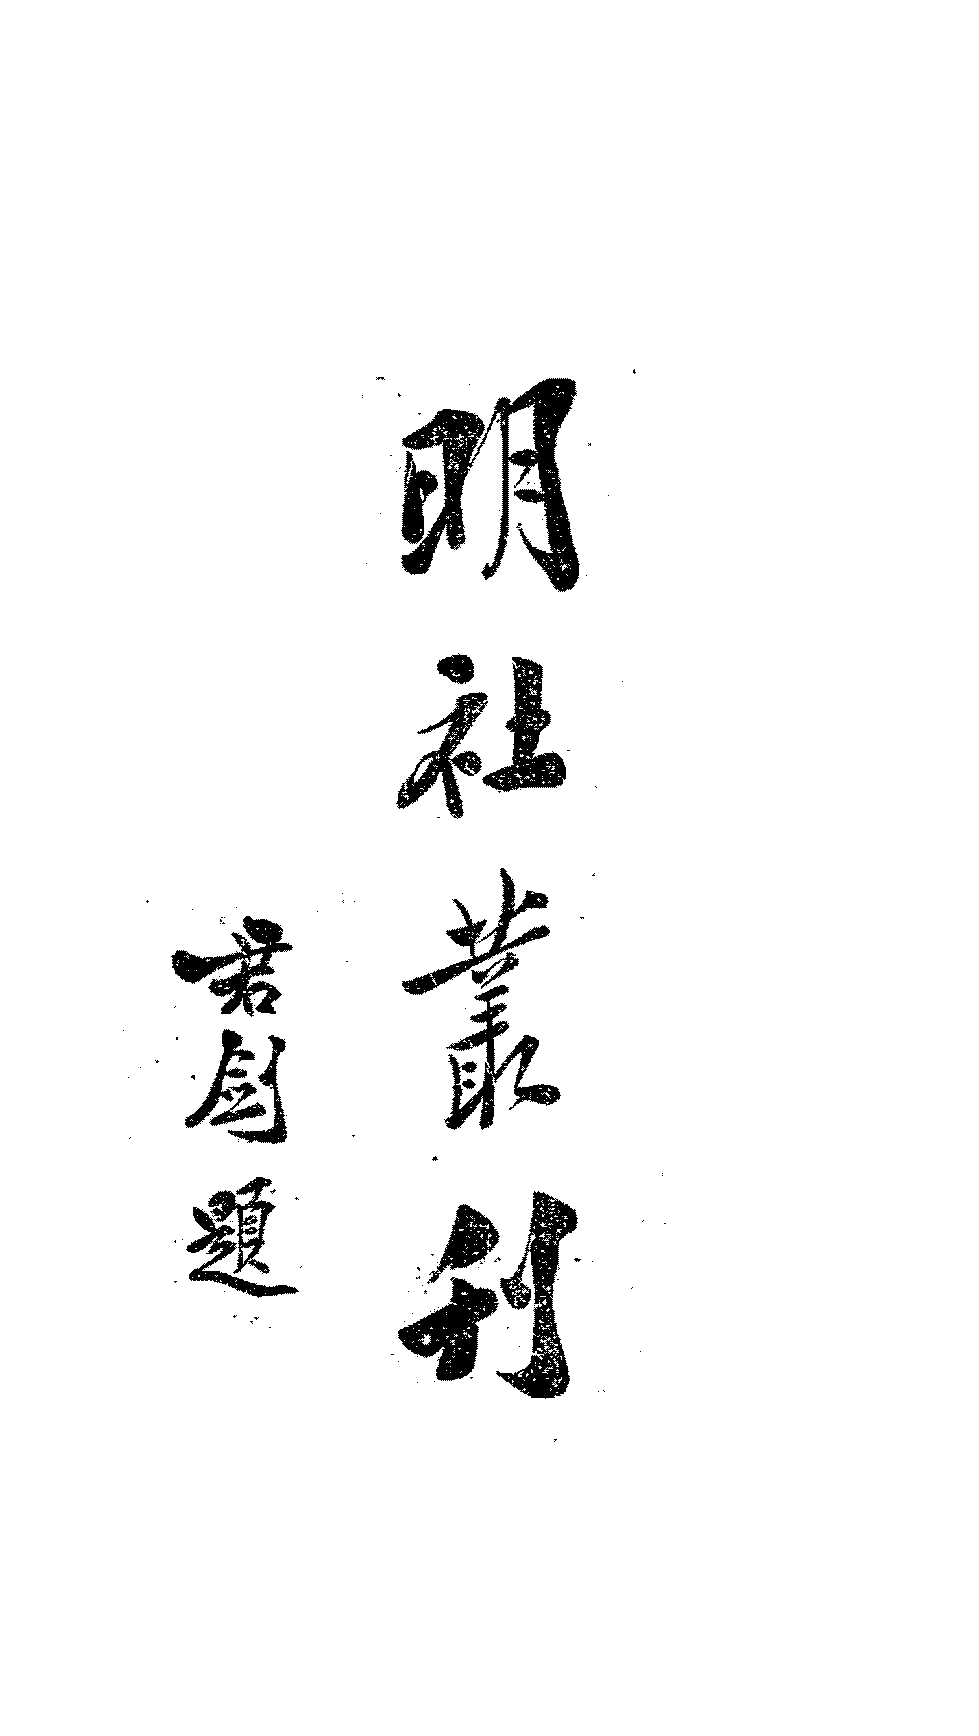 明社叢刊
君劍題